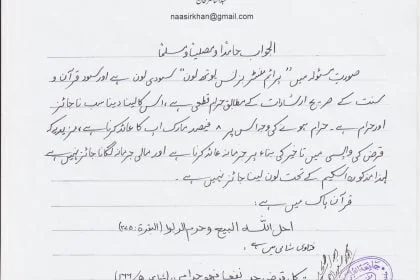 naasirkhan@gmail.com
الجواب حامدا ومصلیا ومسلما
صورت مسئولہ میں "پرائم منسٹر بزنس یوتھ لون" سودی لون ہے اور سود قرآن و
سنت کے صریح ارشادات کے مطابق حرام قطعی ہے، اس کا لینا دینا سب ناجائز
اور حرام ہے۔ حرام ہونے کی وجہ اس پر ۸ فیصد مارک اپ کا عائد کرنا ہے، مزید یہ کہ
قرض کی واپسی میں تاخیر کی بناء پر جرمانہ عائد کرنا ہے اور مالی جرمانہ لگانا جائز نہیں ہے
لہذا مذکورہ اسکیم کے تحت لون لینا جائز نہیں ہے۔
قرآن پاک میں ہے:
احل اللہ البیع وحرم الربوا (البقرة: ۲۷۵)
فتاوی شامی میں ہے:
کل قرض جر نفعا فهو حرام (شامی